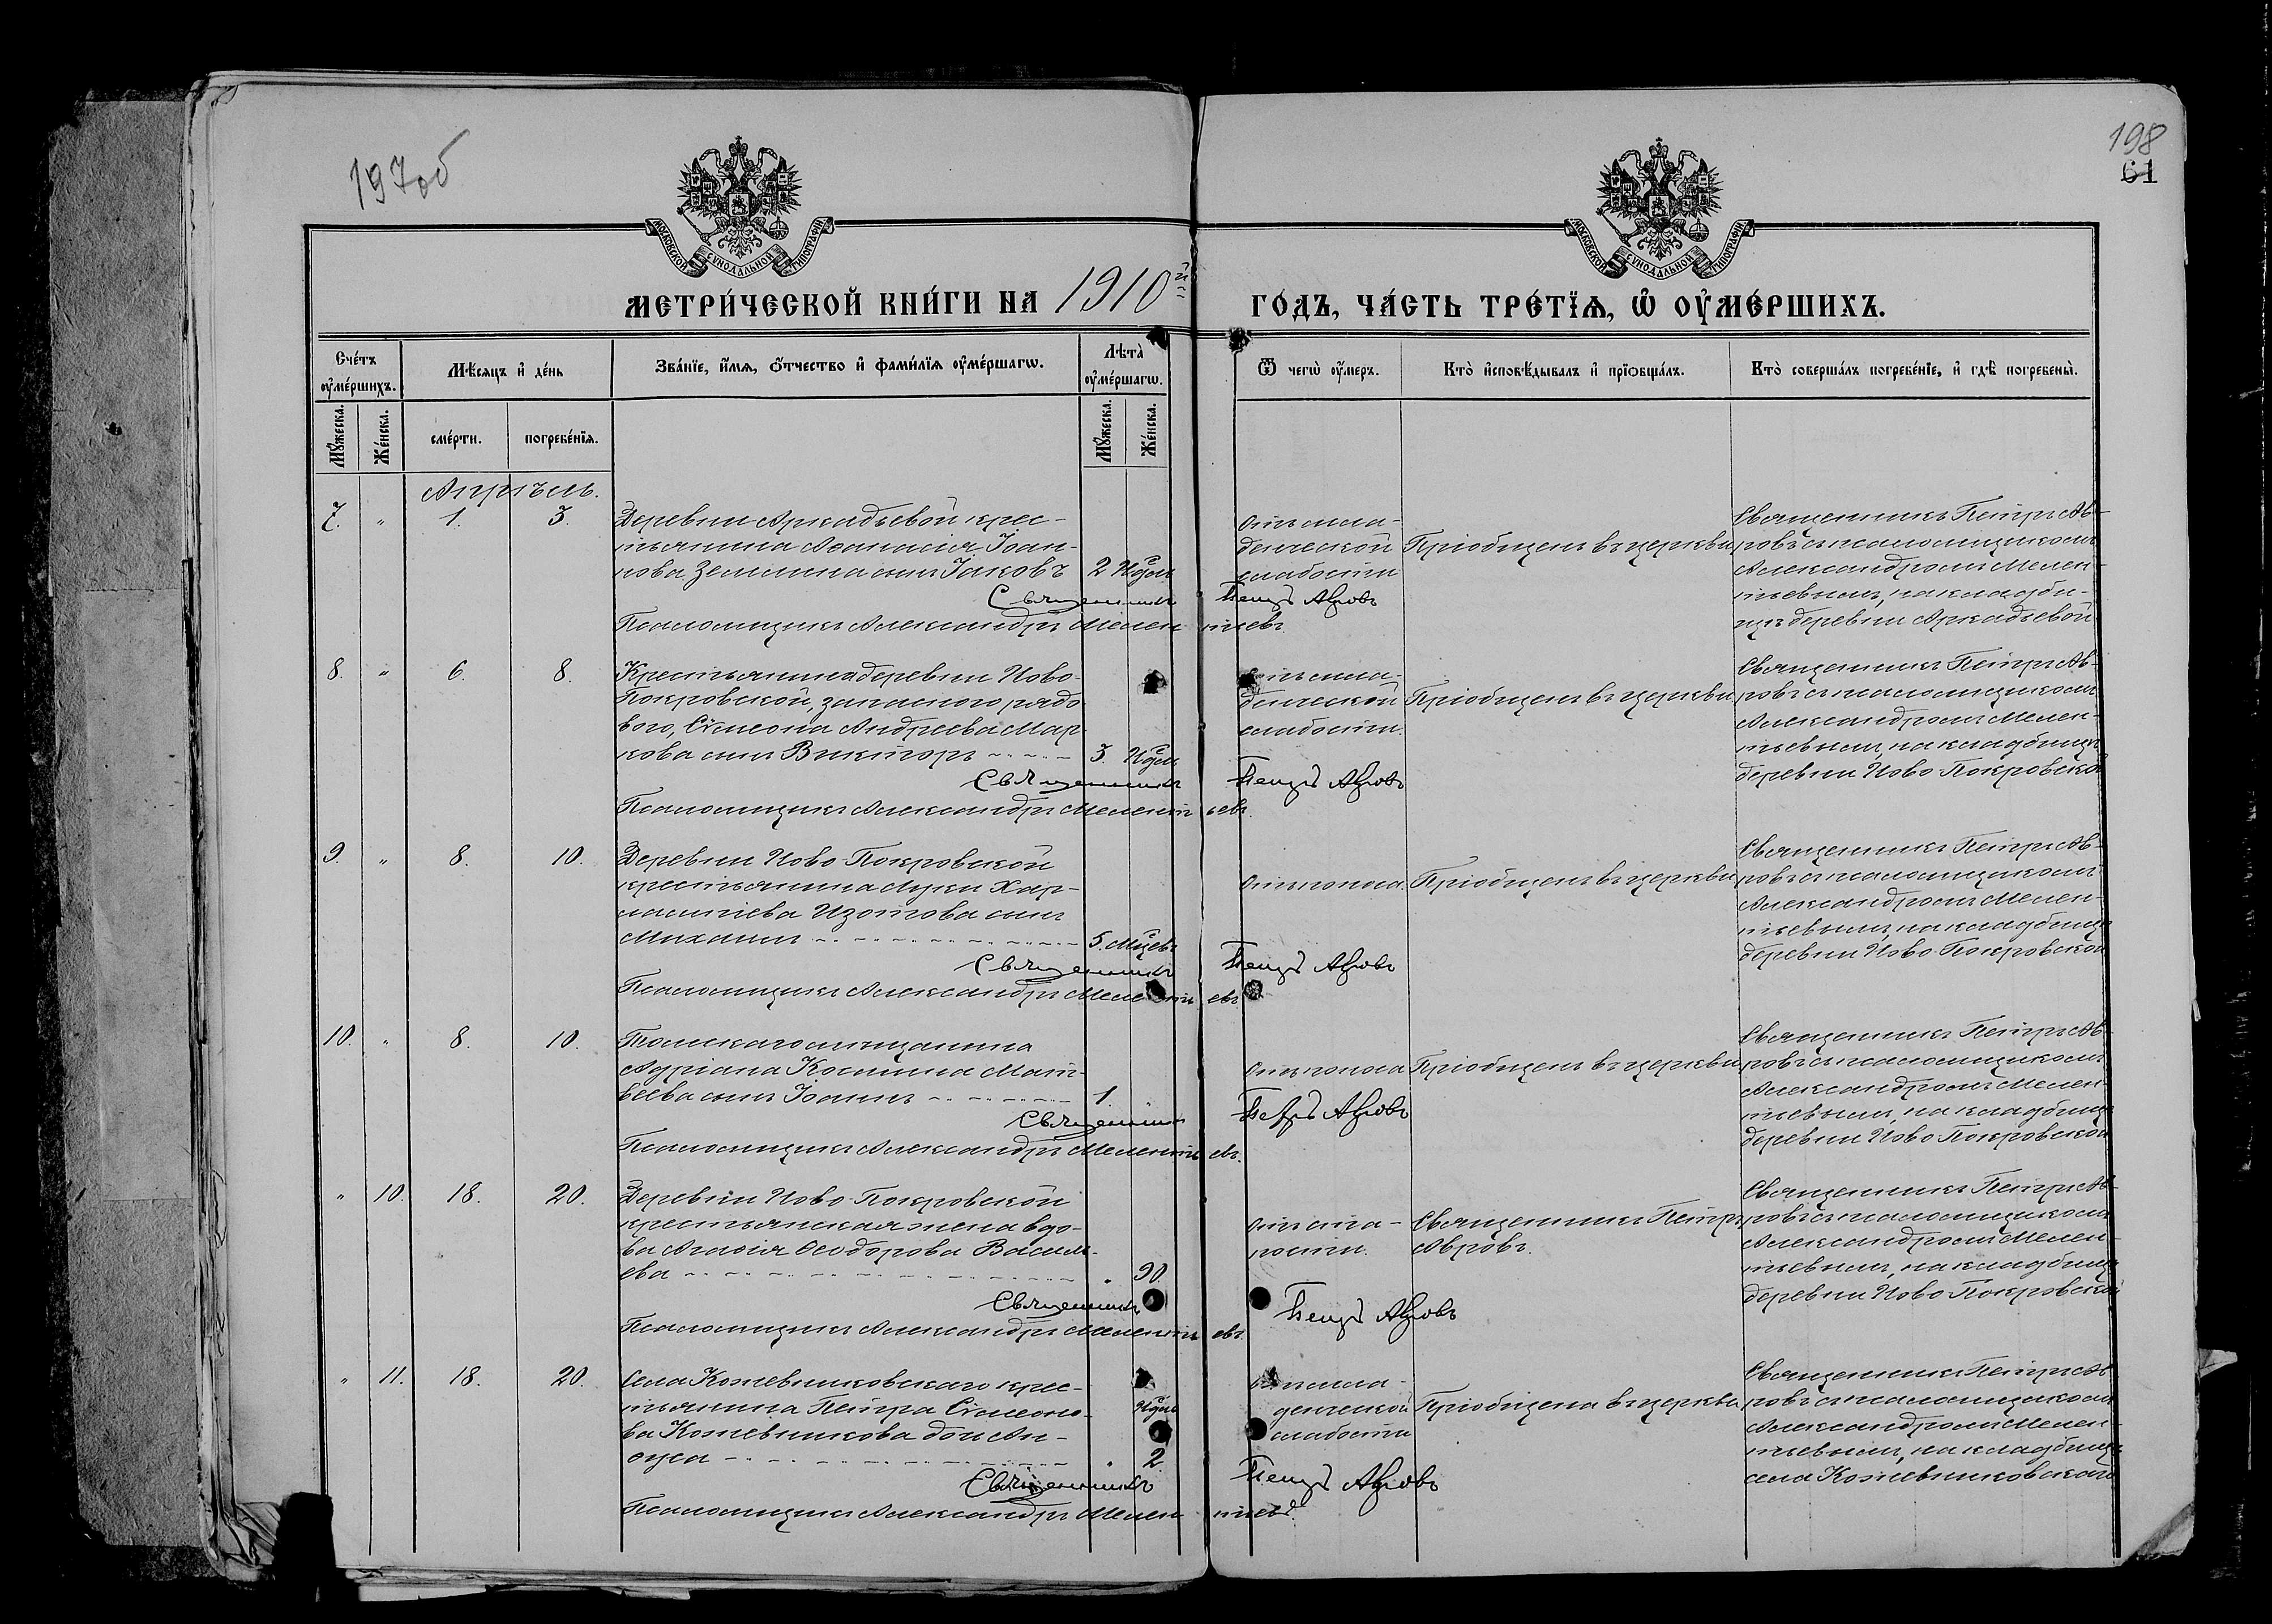 197об
198
61
МОСКОВСКОЙ СѴНОДАЛЬНОЙ ТИПОГРАФІИ
МОСКОВСКОЙ СѴНОДАЛЬНОЙ ТИПОГРАФІИ
МЕТРИ́ЧЕСКОЙ КНИ́ГИ НА 1910й
ГО́ДЪ, ЧА́СТЬ ТРЕ́ТЇѦ, Ѡ҆ ОУ҆МЕ́РШИХЪ.
Счéтъ оу҆мéршихъ.
Мѣ́сяцъ и҆ дéнь
Звáнїе, и҆́мѧ, ѻ҆́тчество и҆ фамѝлїѧ оу҆мéршагѡ.
Лѣ́та̀ оу҆мéршагѡ.
Ѿ чегѡ̀ оу҆́меръ.
Ктò и҆сповѣ́дывалъ и҆ прїѻбщáлъ.
Ктò совершáлъ погребéнїе, и҆ гдѣ̀ погребены̀.
Мꙋ́жеска.
Жéнска.
смéрти.
погребéнїѧ.
Мꙋ́жеска.
Жéнска.
Апрѣль.
7. " 1. 3.
Деревни Аркадьевой крес-
тьянина Аѳанасія Іоан-
нова Землина сынъ Іаковъ 2 Нд҃ѣль
Отъ мла-
денческой
слабости
Пріобщенъ въ церкви
Священникъ Петръ Ав-
ровъ съ псаломщикомъ
Александромъ Мелен-
тьевымъ, на кладби-
щѣ деревни Аркадьевой
Священникъ Петръ Авровъ
Псаломщикъ Александръ Мелентьевъ.
8. " 6. 8.
Крестьянина деревни Ново-
Покровской, запаснаго рядо
вого, Сѵмеона Андреева Мар
кова сынъ Викторъ 3. Нд҃ѣль
Отъ мла-
денческой
слабости.
Пріобщенъ въ церкви
Священникъ Петръ Ав-
ровъ съ псаломщикомъ
Александромъ Мелен-
тьевымъ, на кладбищѣ
деревни Ново Покровской
Священникъ Петръ Авровъ
Псаломщикъ Александръ Мелентьевъ.
9. " 8. 10.
Деревни Ново Покровской
крестьянина Луки Хар-
лампіева Изотова сынъ
Михаилъ 5. Мц҃евъ
Отъ поноса.
Пріобщенъ въ церкви
Священникъ Петръ Ав-
ровъ съ псаломщикомъ
Александромъ Мелен-
тьевымъ, на кладбищѣ
деревни Ново Покровской
Священникъ Петръ Авровъ
Псаломщикъ Александръ Мелентьевъ.
10. " 8. 10.
Томскаго мѣщанина
Адріана Космина Мат-
веева сынъ Іоаннъ 1.
Отъ поноса
Пріобщенъ въ церкви
Священникъ Петръ Ав-
ровъ съ псаломщикомъ
Александромъ Мелен-
тьевымъ, на кладбищѣ
деревни Ново Покровской
Священникъ Петръ Авровъ
Псаломщикъ Александръ Мелентьевъ.
" 10. 18. 20.
Деревни Ново Покровской
крестьянская жена вдо-
ва Агаѳія Ѳеодорова Василь-
ева " 90
Отъ ста-
рости.
Священникъ Петръ
Авровъ.
Священникъ Петръ Ав-
ровъ съ псаломщикомъ
Александромъ Мелен-
тьевымъ, на кладбищѣ
деревни Ново Покровской
Священникъ Петръ Авровъ
Псаломщикъ Александръ Мелентьевъ.
" 11. 18. 20.
Села Кожевниковскаго крес-
тьянина Петра Сѵмеоно-
ва Кожевникова дочь Ан-
фуса " 2 Нд҃ѣль
Отъ мла-
денческой
слабости
Пріобщена въ церкви
Священникъ Петръ Ав
ровъ съ псаломщикомъ
Александромъ Мелен-
тьевымъ, на кладбищѣ
села Кожевниковскаго
Священникъ Петръ Авровъ
Псаломщикъ Александръ Мелентьевъ.